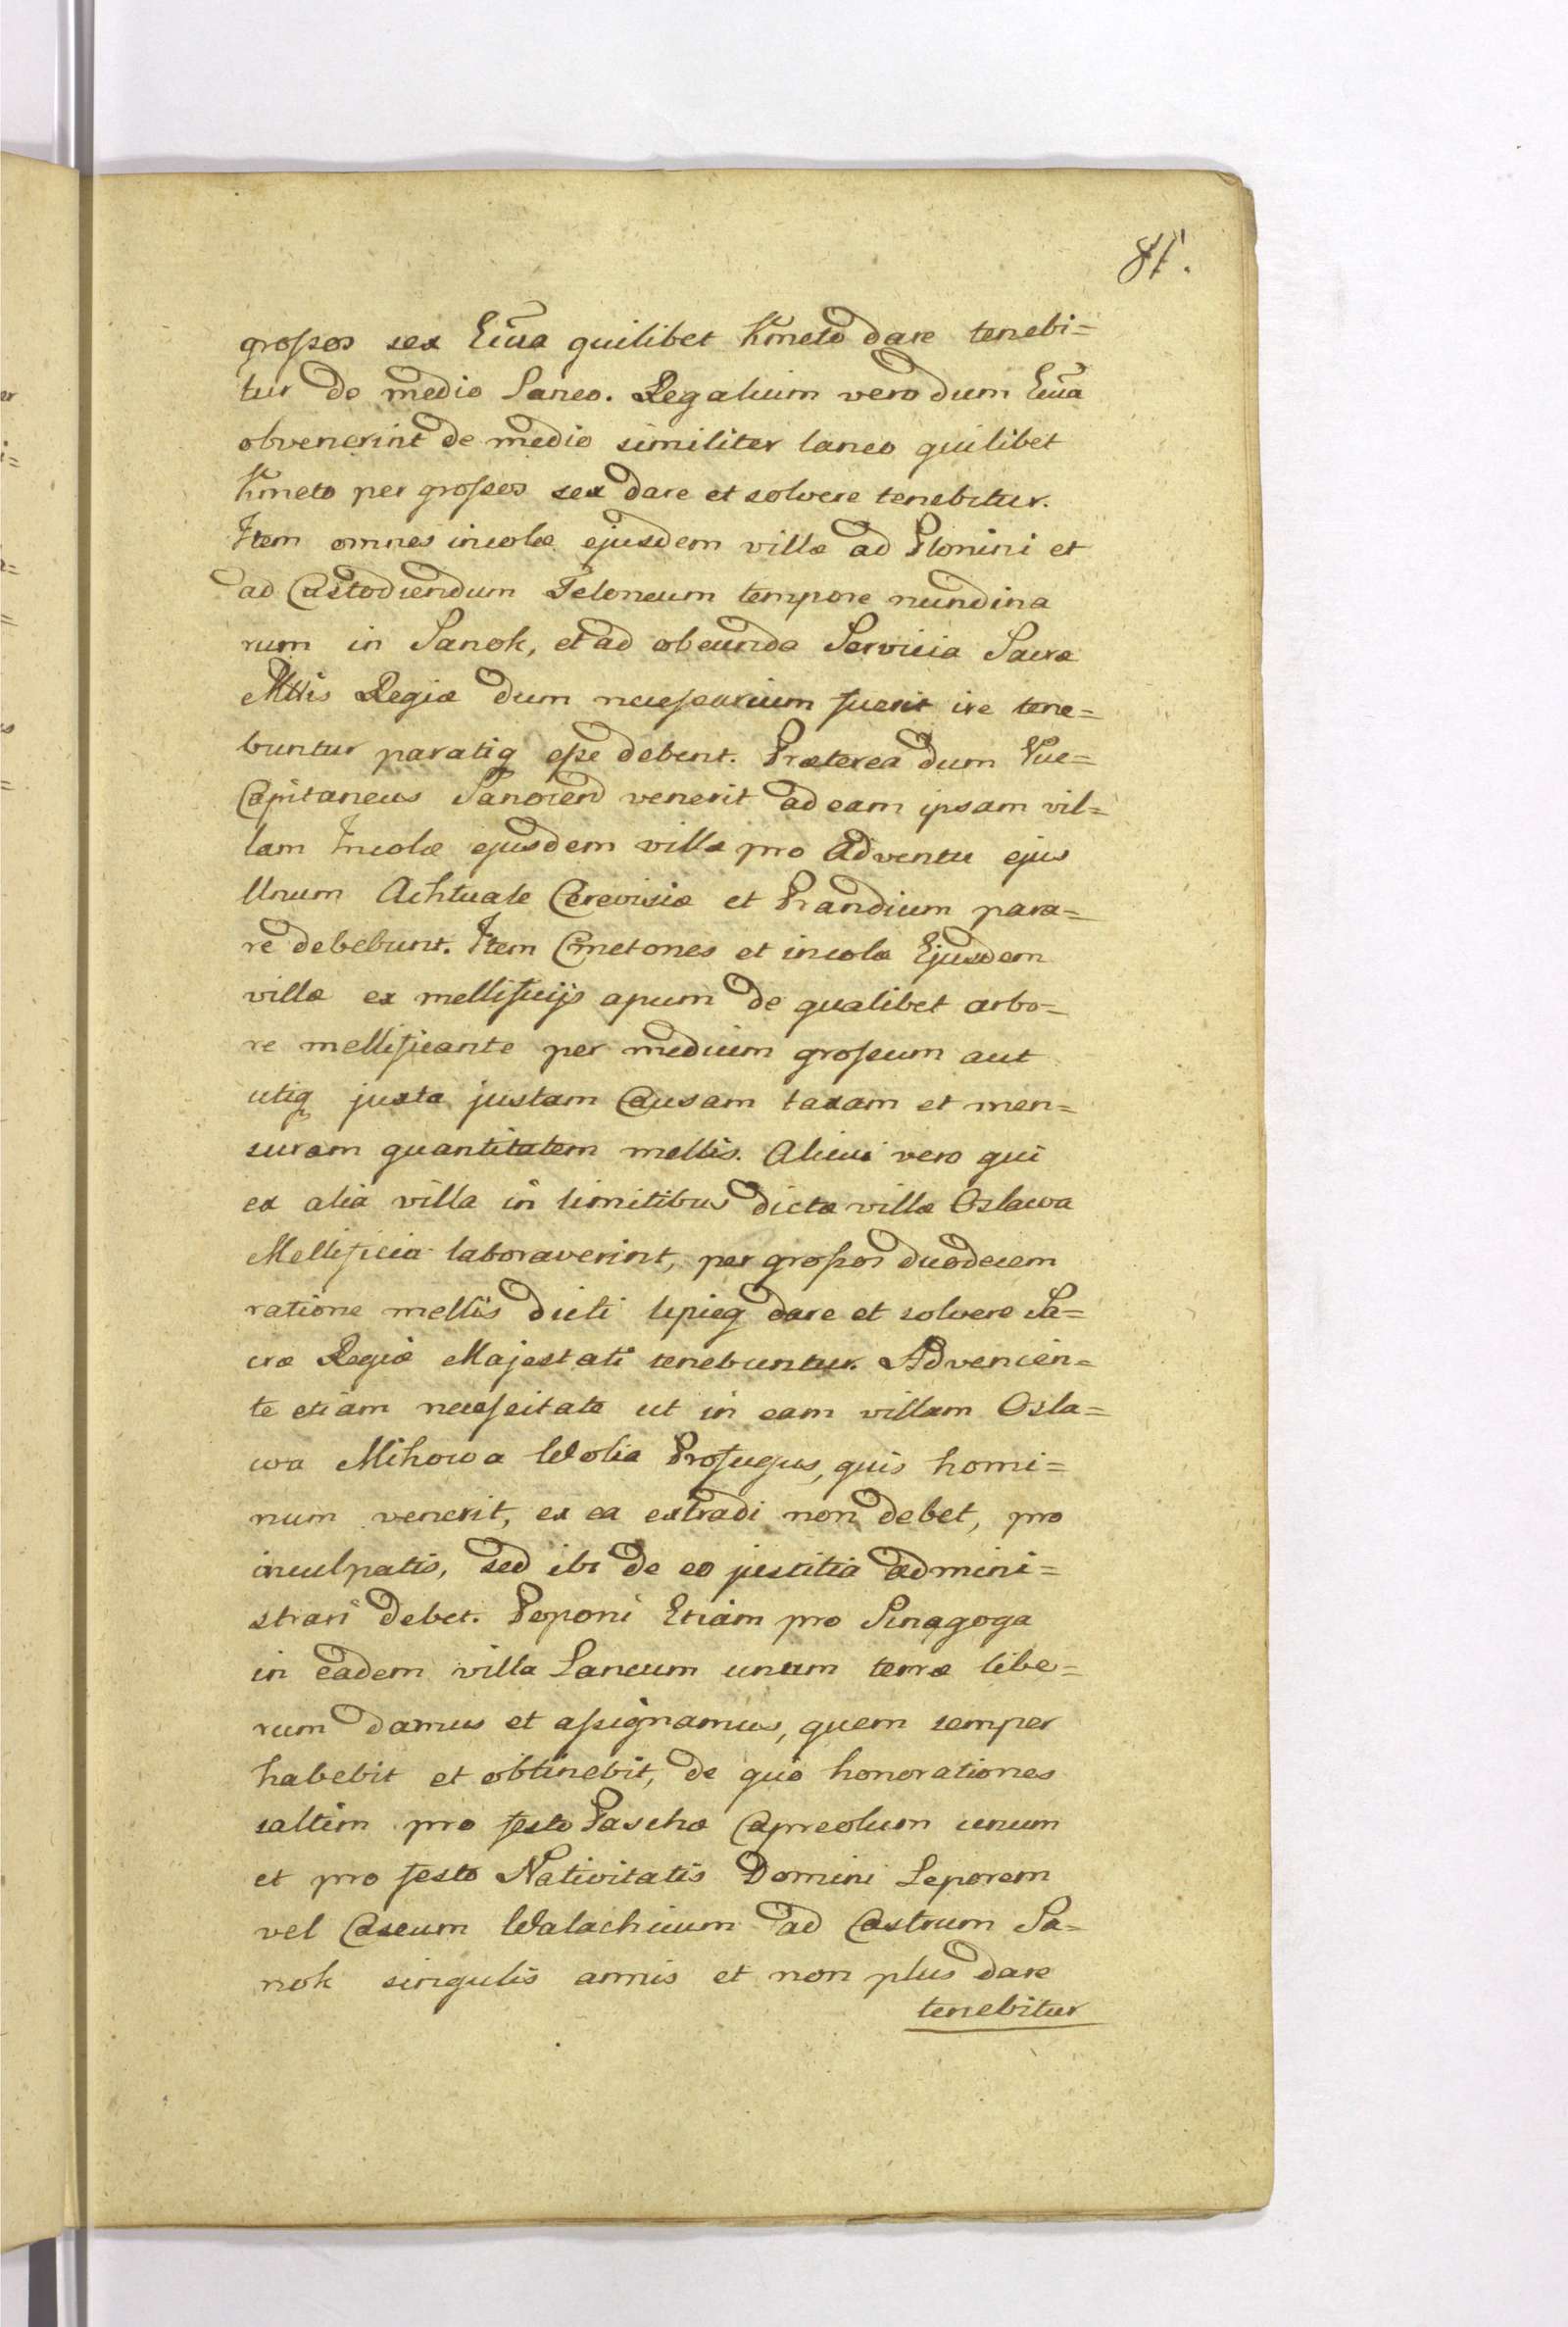 81.
groſsos sex Eiúa quilibet Kmeto dare tenebi=
tur de medio Laneo. Regalium vero dum Eiúa
obvenerint de medio similiter laneo quilibet
Kmeto per groſsos sex dare et solvere tenebitur.
Item omnes incolæ ejusdem villæ ad Plonini et
ad Custodiendum Teloneum tempore nundina
rum in Sanok, et ad obeunda Servicia Sacræ
Mttis Regiæ dum neceſsarium fuerit ire tene=
buntur paratiq eſse debent. Præterea dum Vice=
Capitaneus Sanocen venerit ad eam ipsam vil=
lam Incolæ ejusdem villæ pro Adventu ejus
Unum Achtuale Cerevisiæ et Prandium para=
re debebunt. Item Cmetones et incolæ Ejusdem
villæ ex mellificijs apum de qualibet arbo=
re mellificante per medium groſsum aut
utiq juxta justam Causam taxam et men=
suram quantitatem mellis. Alicui vero qui
ex alia villa in limitibus dictæ villæ Oslawa
Mellificia laboraverint, per groſsos duodecem
ratione mellis dicti lipieg dare et solvere Sa=
cræ Regiæ Majestati tenebuntur. Advenien=
te etiam neceſseitate ut in eam villam Osla=
wa Mihowa Wolia Profugus, quis homi=
num venerit, ex ea extradi non debet, pro
inculpatis, sed ibi de eo justitia admini=
strari debet. Poponi Etiam pro Sinagoga
in eadem villa Laneum unum terræ libe=
rum damus et aſsignamus, quem semper
habebit et obtinebit, de quo honorationes
saltim pro festo Paschæ Capreolum unum
et pro festo Nativitatis Domini Leporem
vel Caseum Walachicum ad Castrum Sa=
nok singulis annis et non plus dare
tenebitur